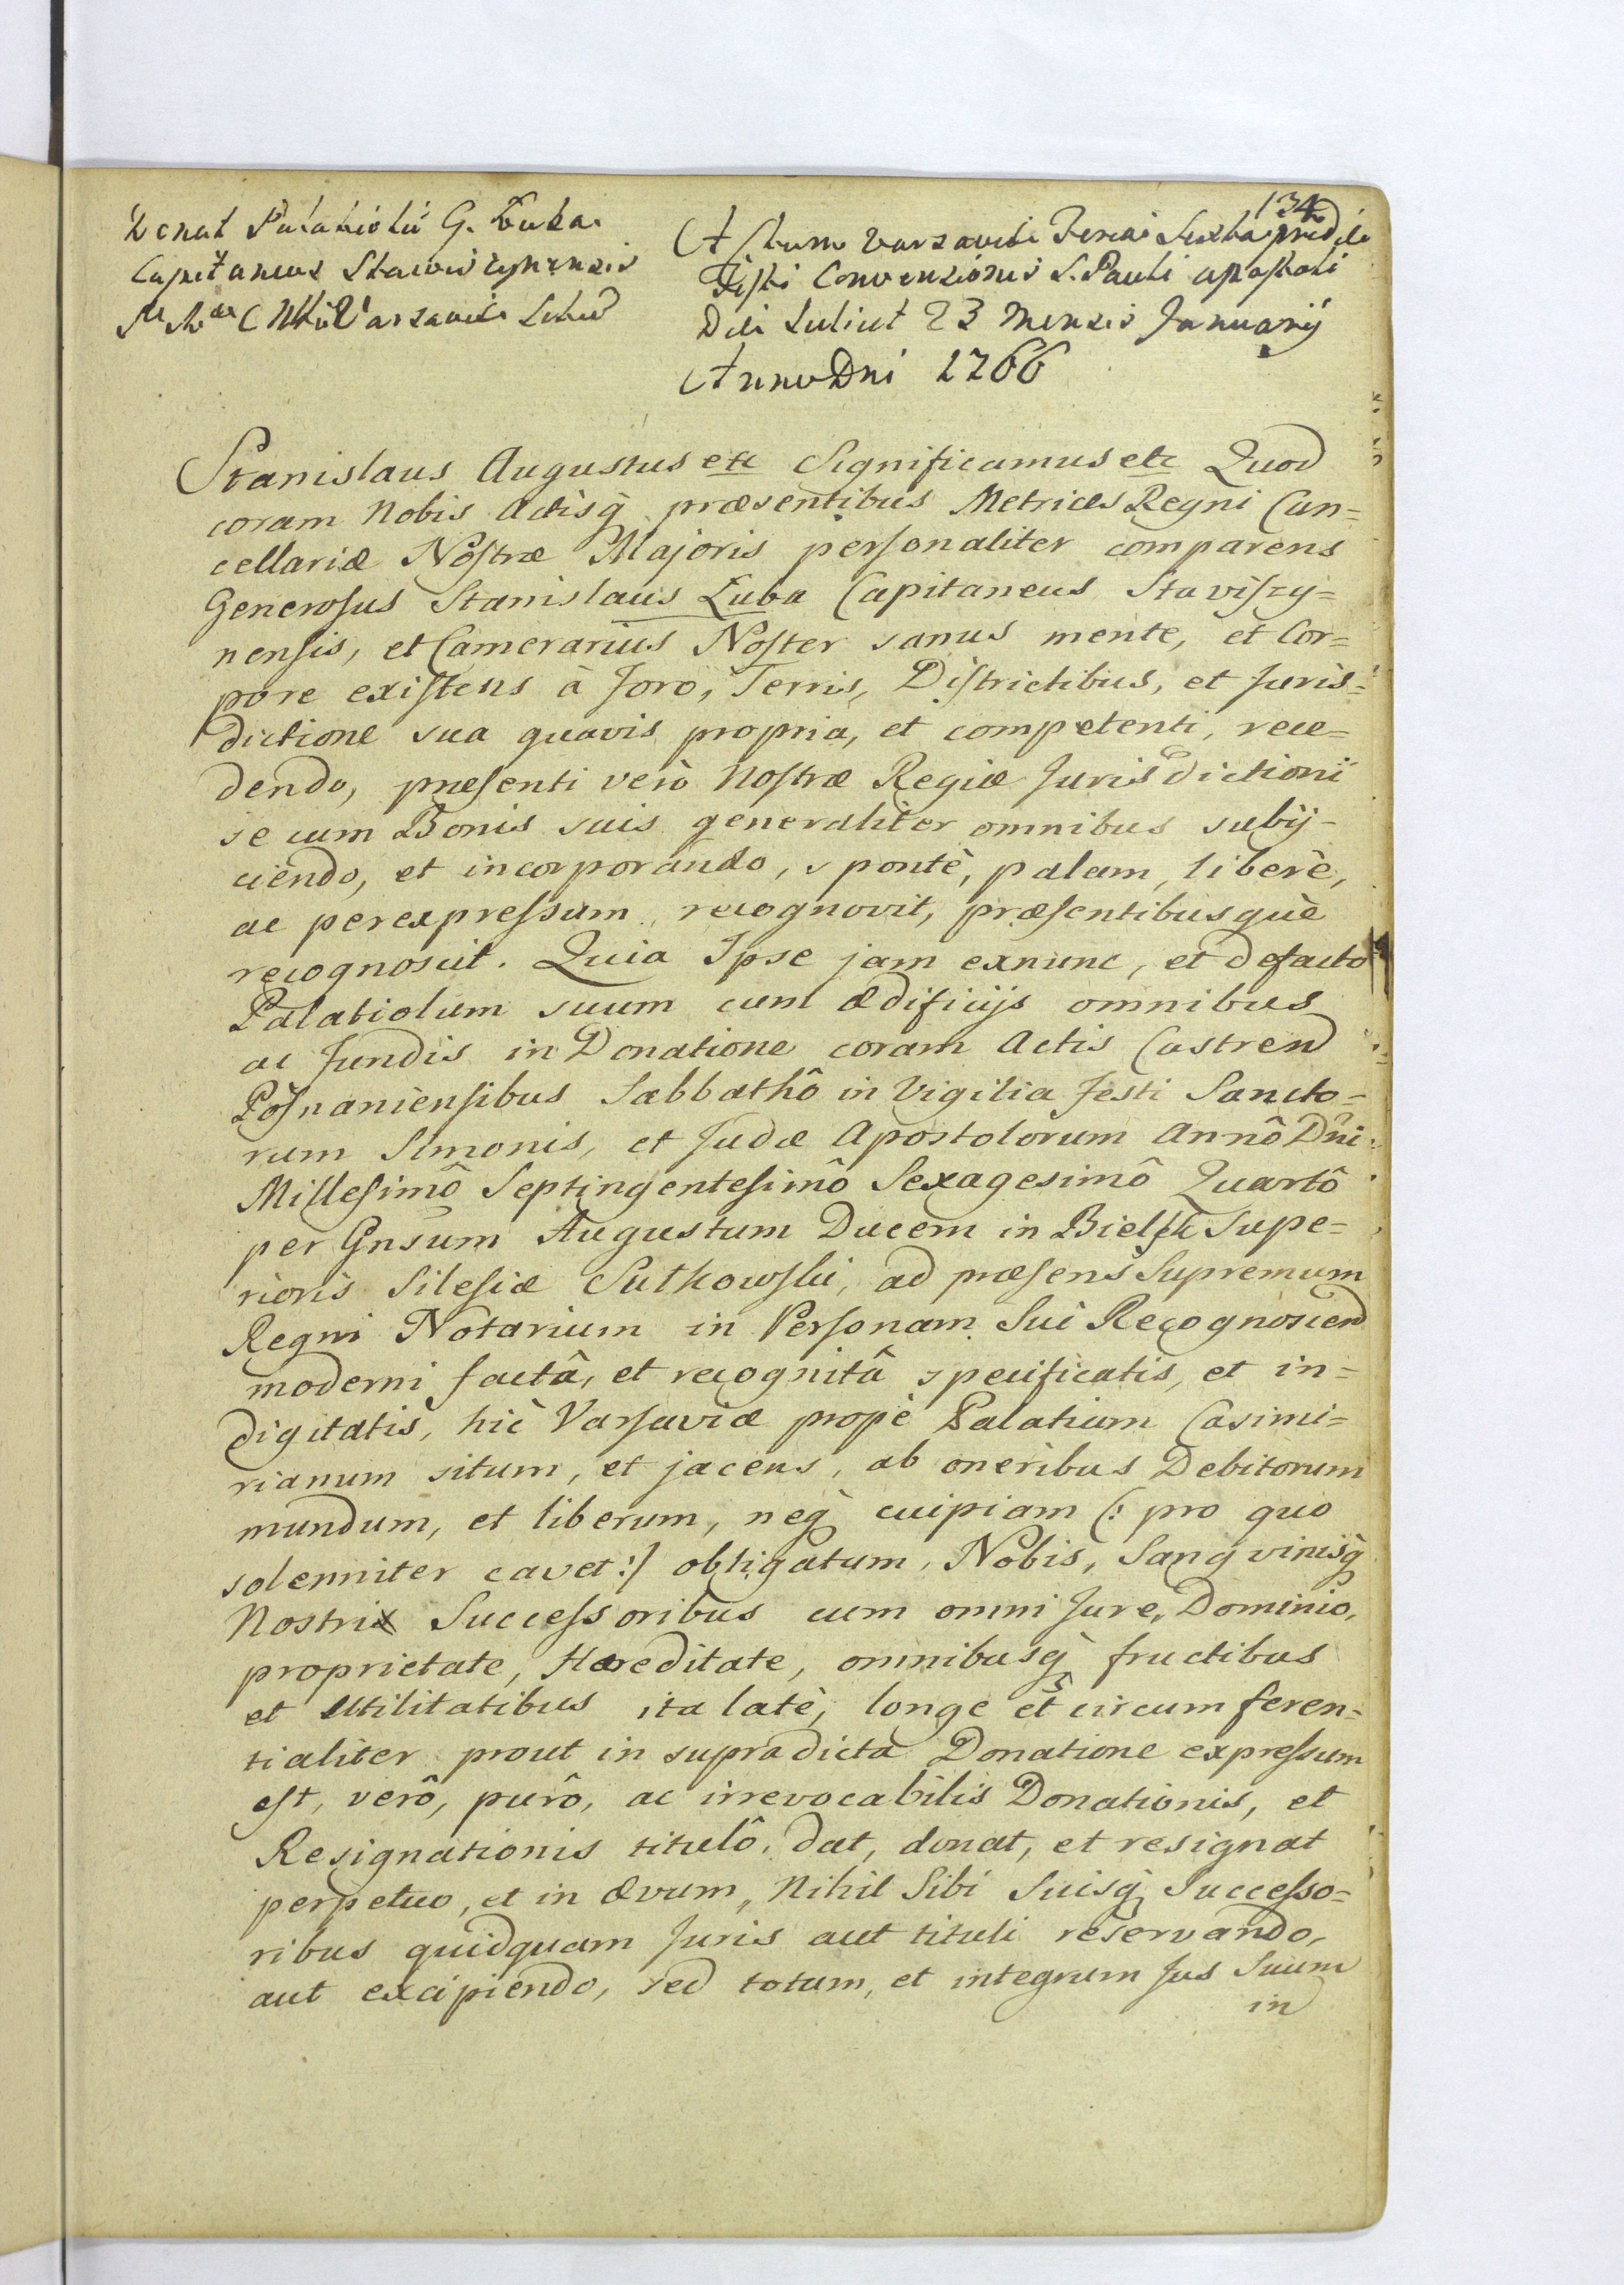 134
Donat Palatiolū G. Łuba
Capitaneus Stawiszynensis
Varsaviæ
Actum Varsaviæ Feria Sexta pridie
Festi Conversionis S. Pauli Apostoli
Die scilicet 23 Mensis Januarij
Anno Dni 1766
Stanislaus Augustus etc Significamus etc Quod
coram Nobis Actisq̀ præsentibus Metrices Regni Can=
cellariæ Nostræ Majoris personaliter comparens
Generosus Stanislaus Łuba Capitaneus Staviszy=
nensis, et Camerarius Noster sanus mente, et Cor=
pore existens à Foro, Terris, Districtibus, et Juris=
dictione sua quavis propria, et competenti, rece=
dendo, præsenti verò Nostræ Regiæ Jurisdictioni
se cum Bonis suis generaliter omnibus subij=
ciendo, et incorporando, spontè, palam, liberè,
ac per expressum recognovit, præsentibusquè
recognoscit. Quia Ipse jam exnunc, et defacto
Palatiolum suum cum ædificijs omnibus
ac Fundis in Donatione coram Actis Castren
Posnaniensibus Sabbathô in Vigilia Festi Sancto=
rum Simonis, et Judæ Apostolorum Annô Dñi
Millesimô Septingentesimô Sexagesimô Quartô
per Gnsum Augustum Ducem in Bielsk Supe=
rioris Silesiæ Sułkowski, ad præsens Supremum
Regni Notarium in Personam Sui Recognoscen
moderni factâ, et recognitâ specificatis, et in=
digitatis, hic Varsaviæ propè Palatium Casimi=
rianum situm, et jacens, ab oneribus Debitorum
mundum, et liberum, neq̀ cuipiam (: pro quo
solenniter cavet :) obligatum, Nobis, Sangvinisq̀
Nostri Successoribus cum omni Jure, Dominio,
proprietate, Hæreditate, omnibusq̀ fructibus
et utilitatibus ita latè, longe et circumferen=
tialiter prout in supradicta Donatione expressum
est, verô, purô, ac irrevocabilis Donationis, et
Resignationis titulô, dat, donat, et resignat
perpetuo, et in ævum, Nihil Sibi Suisq̀ Successo=
ribus quidquam Juris aut tituli reservando,
aut excipiendo, sed totum, et integrum Jus Suum
in